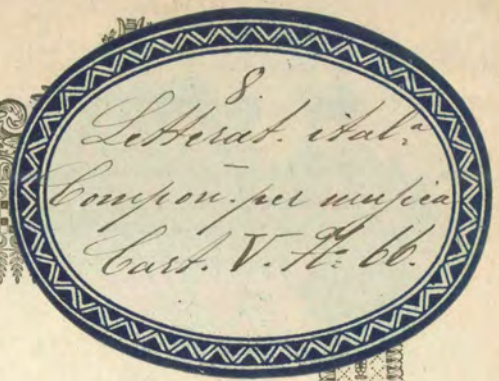 8.
Letterat. ital.ª
Compon. per musica
Cart. V. N.º 66.